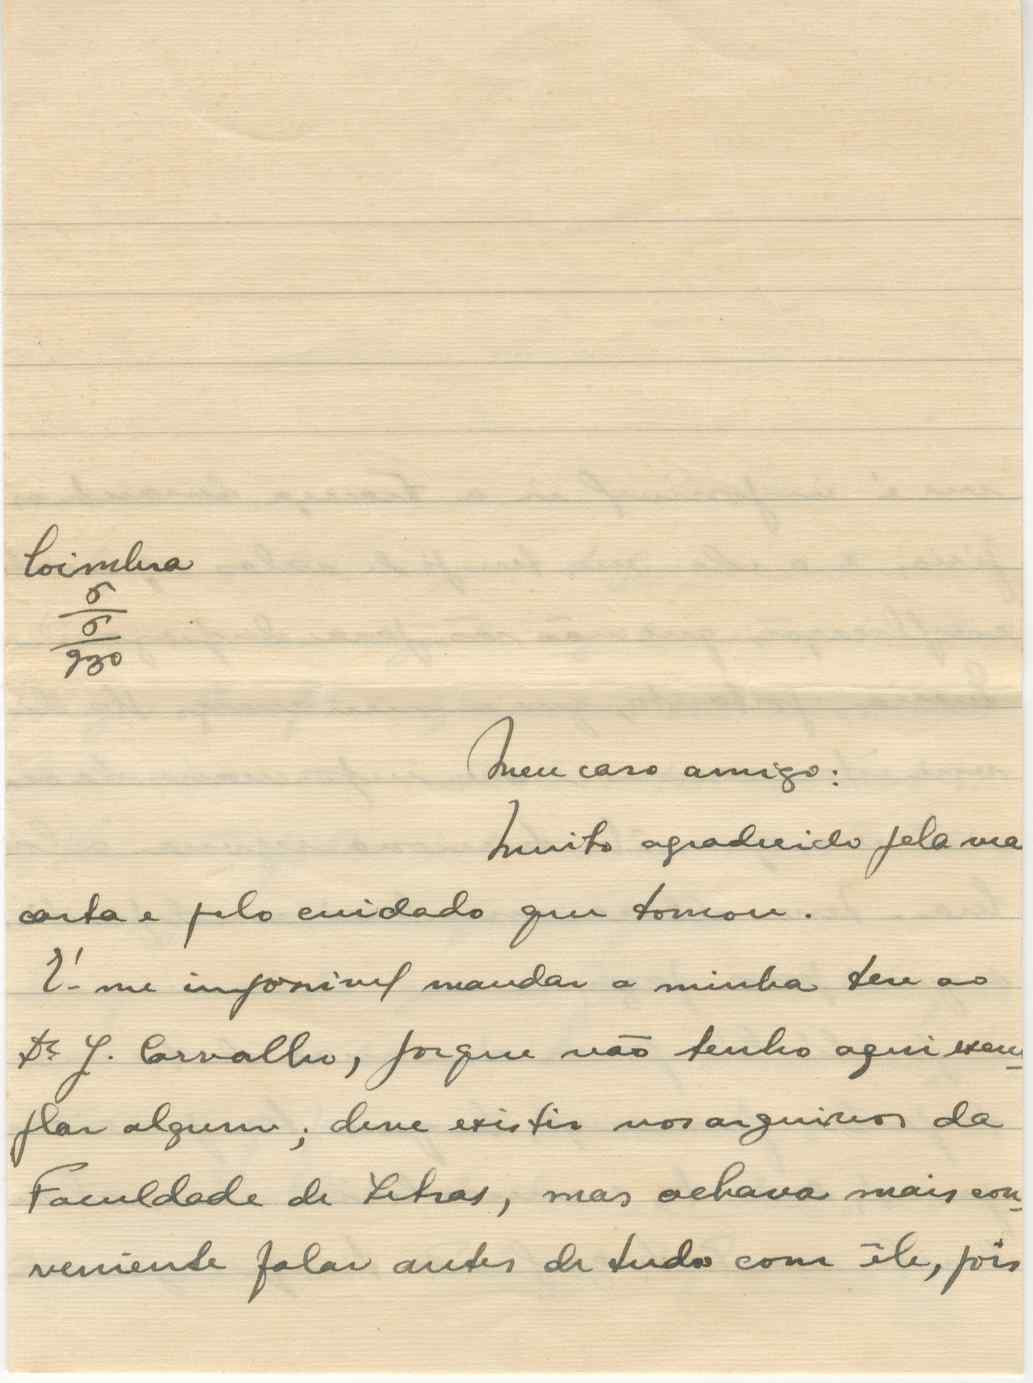 Coimbra
5
5
930
Meu caro amigo:
Muito agradecido pela sua
carta e pelo cuidado que tomou.
É-me impossivel mandar a minha tese ao
Dr. J. Carvalho, porque não tenho aqui exem-
plar algum; deve existir nos arquivos da
Faculdade de Letras, mas achava mais con-
veniente falar antes de tudo com êle, pois